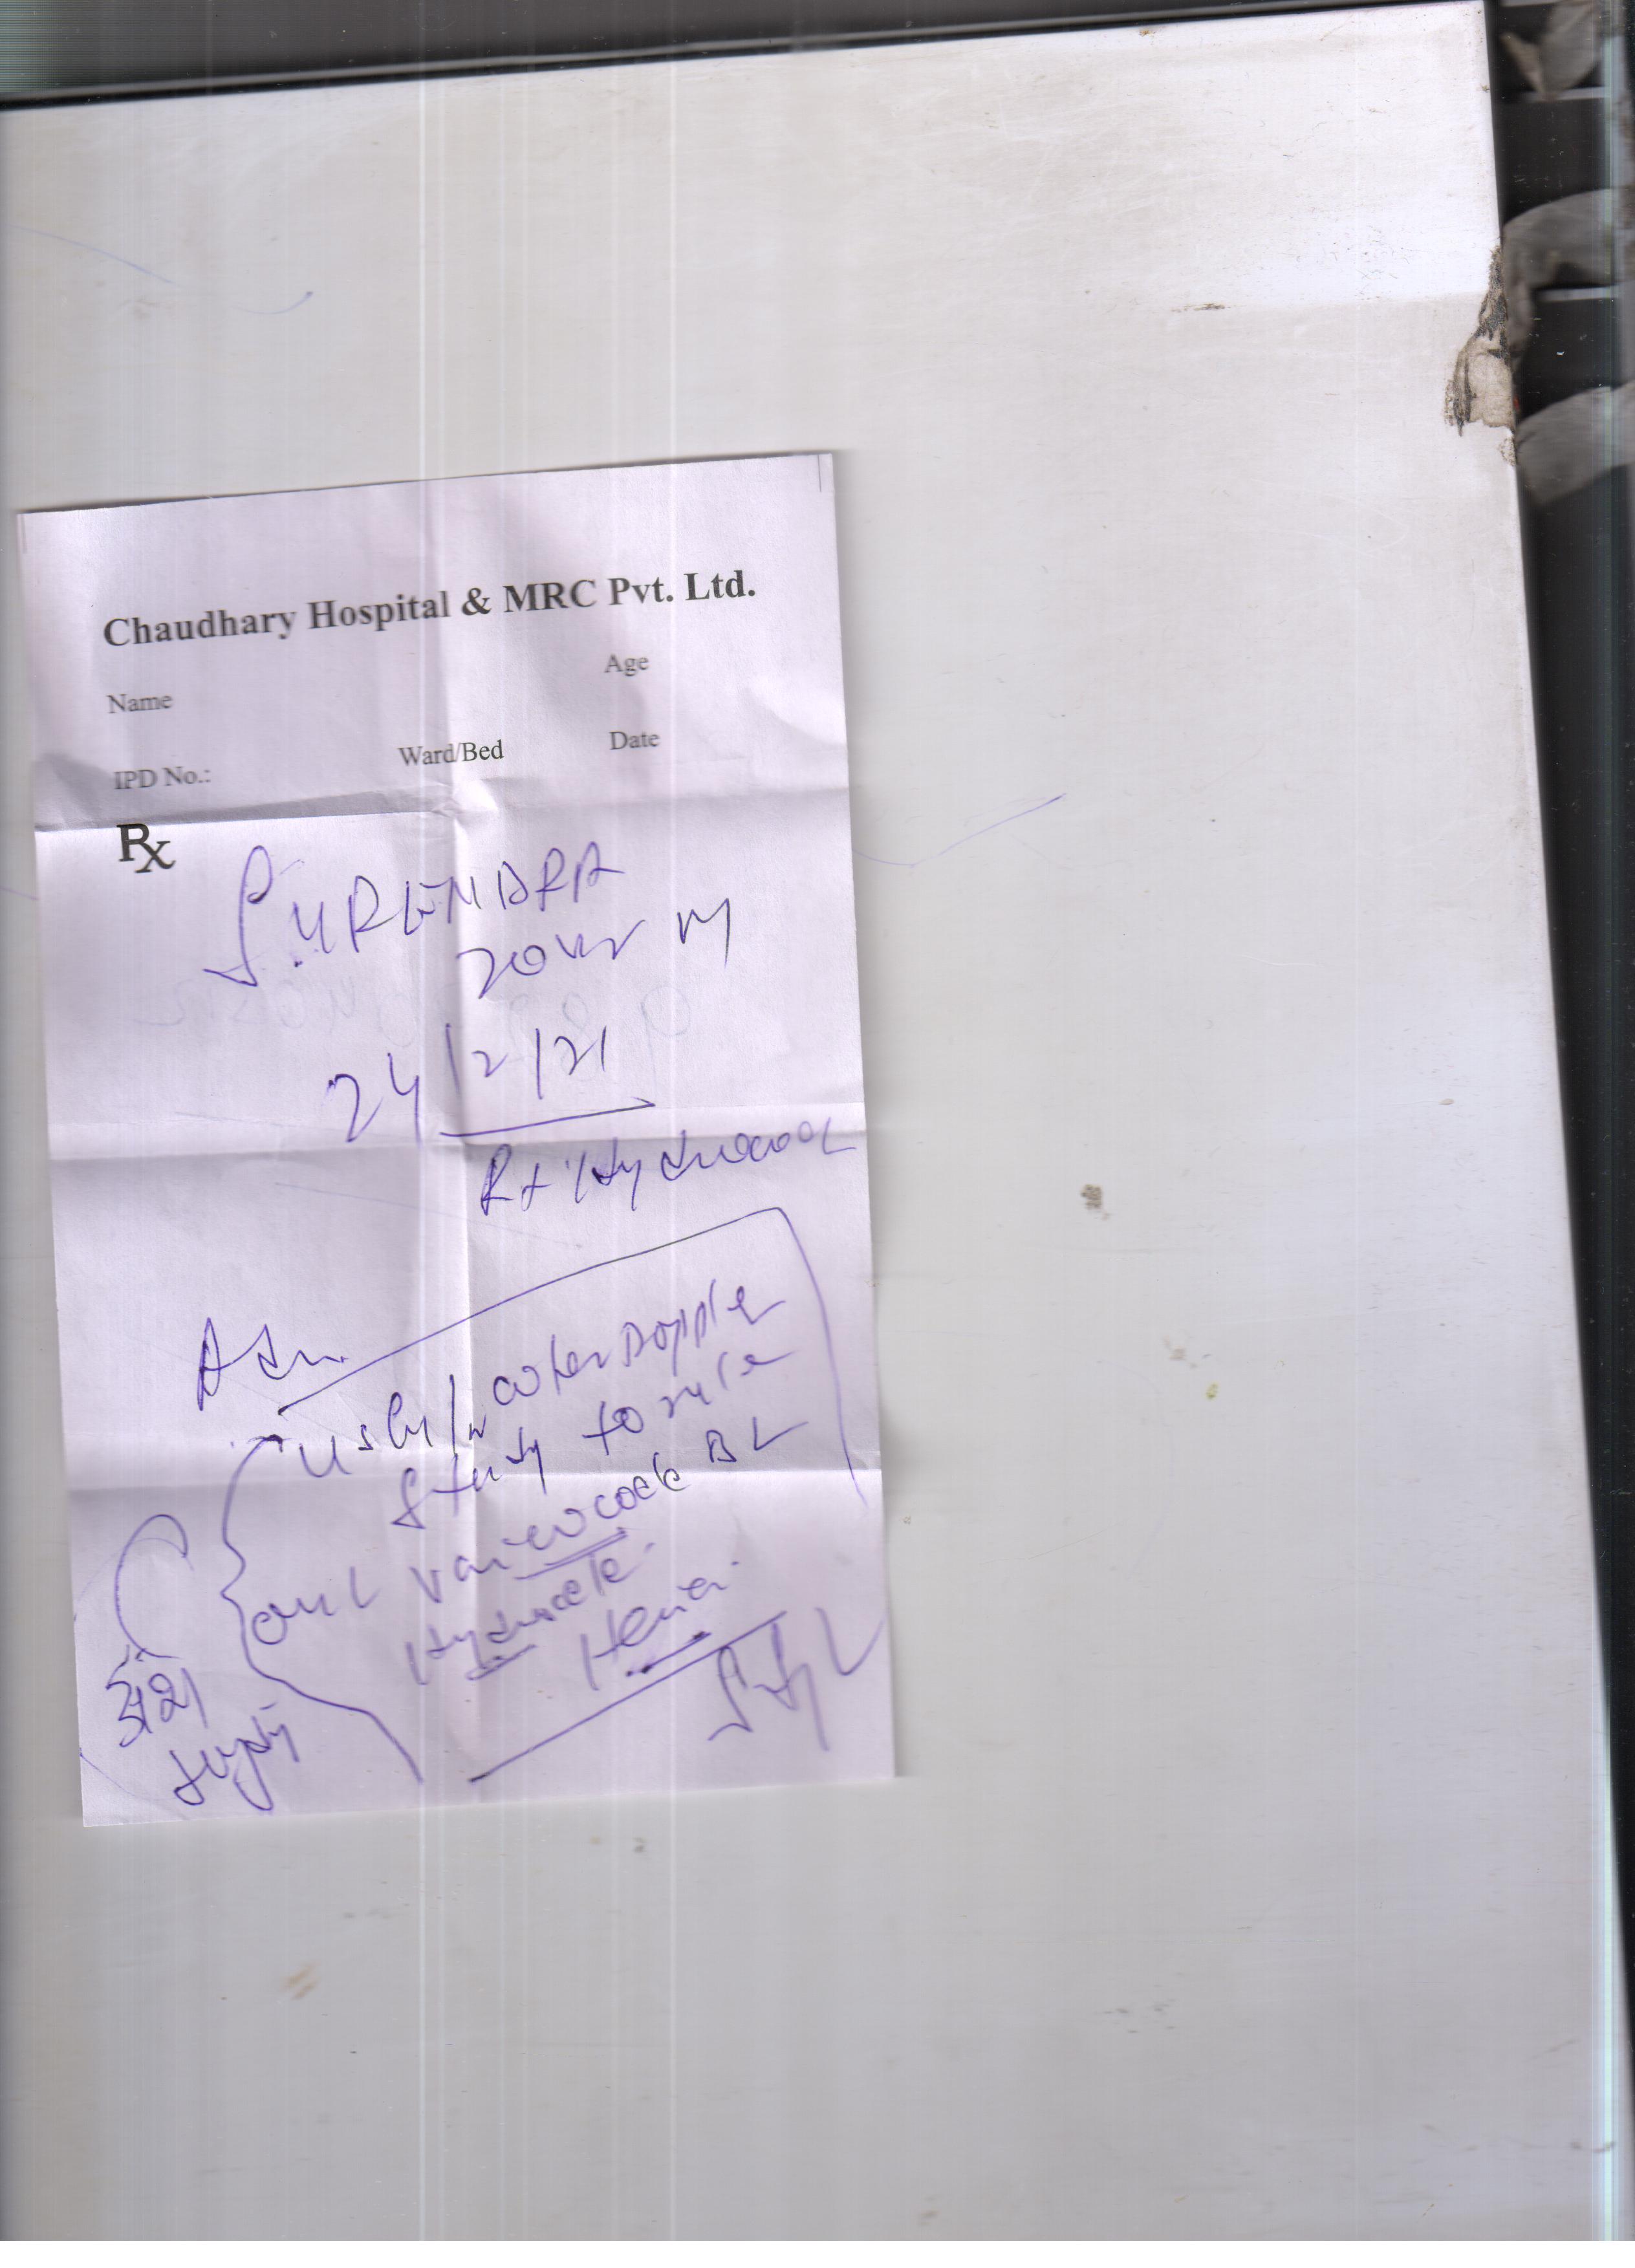 Chaudhary Hospital & MRC Pvt. Ltd.
Name Age
IPD No.: Ward/Bed Date
Rx
SURENDRA
24/2/21
Rt Hydrocoel
Adv.
color Doppler
Study to rule
out Varicocele BL
Hydrocele
Hernia